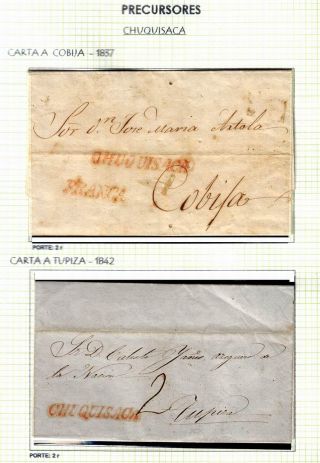 PRECURSORES
CHUQUISACA
CARTA A COBIJA - 1837
Sor Dn Jose Maria Artola
CHUQUISACA
FRANCA
Cobija
PORTE: 2 r
CARTA A TUPIZA - 1842
Sr D. Calisto
a
la Nacion
2
CHUQUISACA
Tupiza
PORTE: 2 r